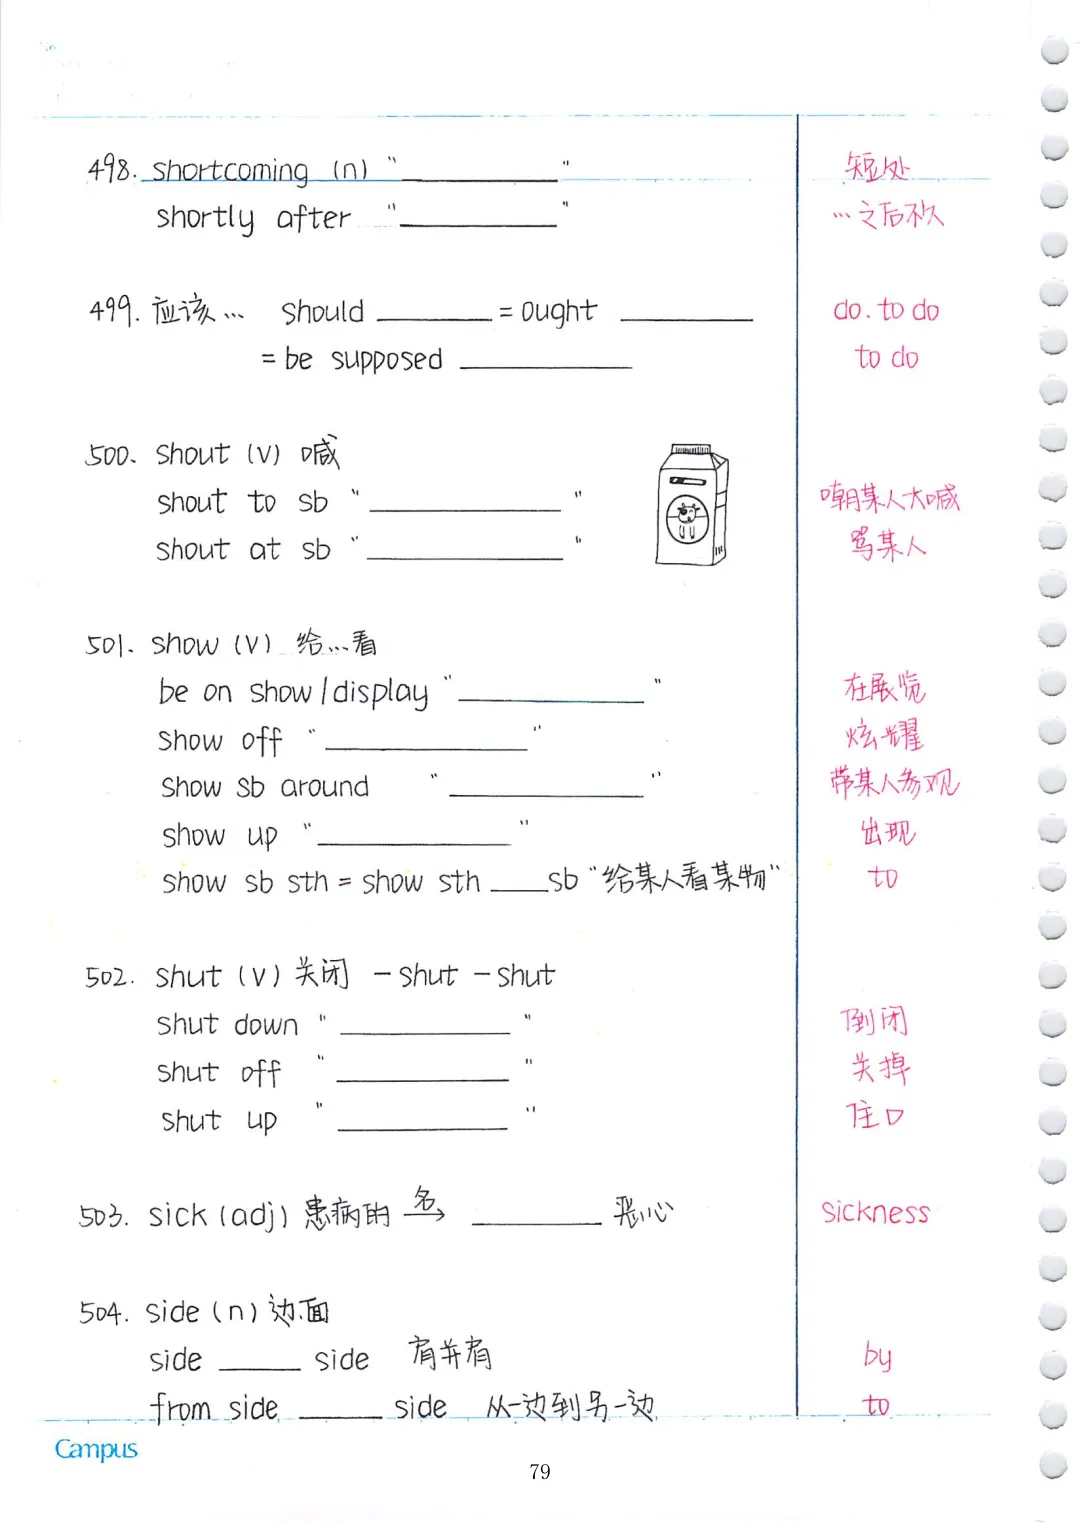 498. shortcoming (n) "__________" 短处
shortly after "__________" …之后不久
499. 应该… should ________ = ought ________ do. to do
= be supposed __________ to do
500. shout (v) 喊
shout to sb "__________" 嘲某人大喊
shout at sb "__________" 骂某人
501. show (v) 给…看
be on show/display "__________" 在展览
show off "__________" 炫耀
show sb around "__________" 带某人参观
show up "__________" 出现
show sb sth = show sth ____ sb "给某人看某物" to
502. shut (v) 关闭 - shut - shut
shut down "__________" 倒闭
shut off "__________" 关掉
shut up "__________" 住口
503. sick (adj) 患病的 名→ ________ 恶心 sickness
504. side (n) 边,面
side _____ side 肩并肩 by
from side _____ side 从一边到另一边 to
Campus
79